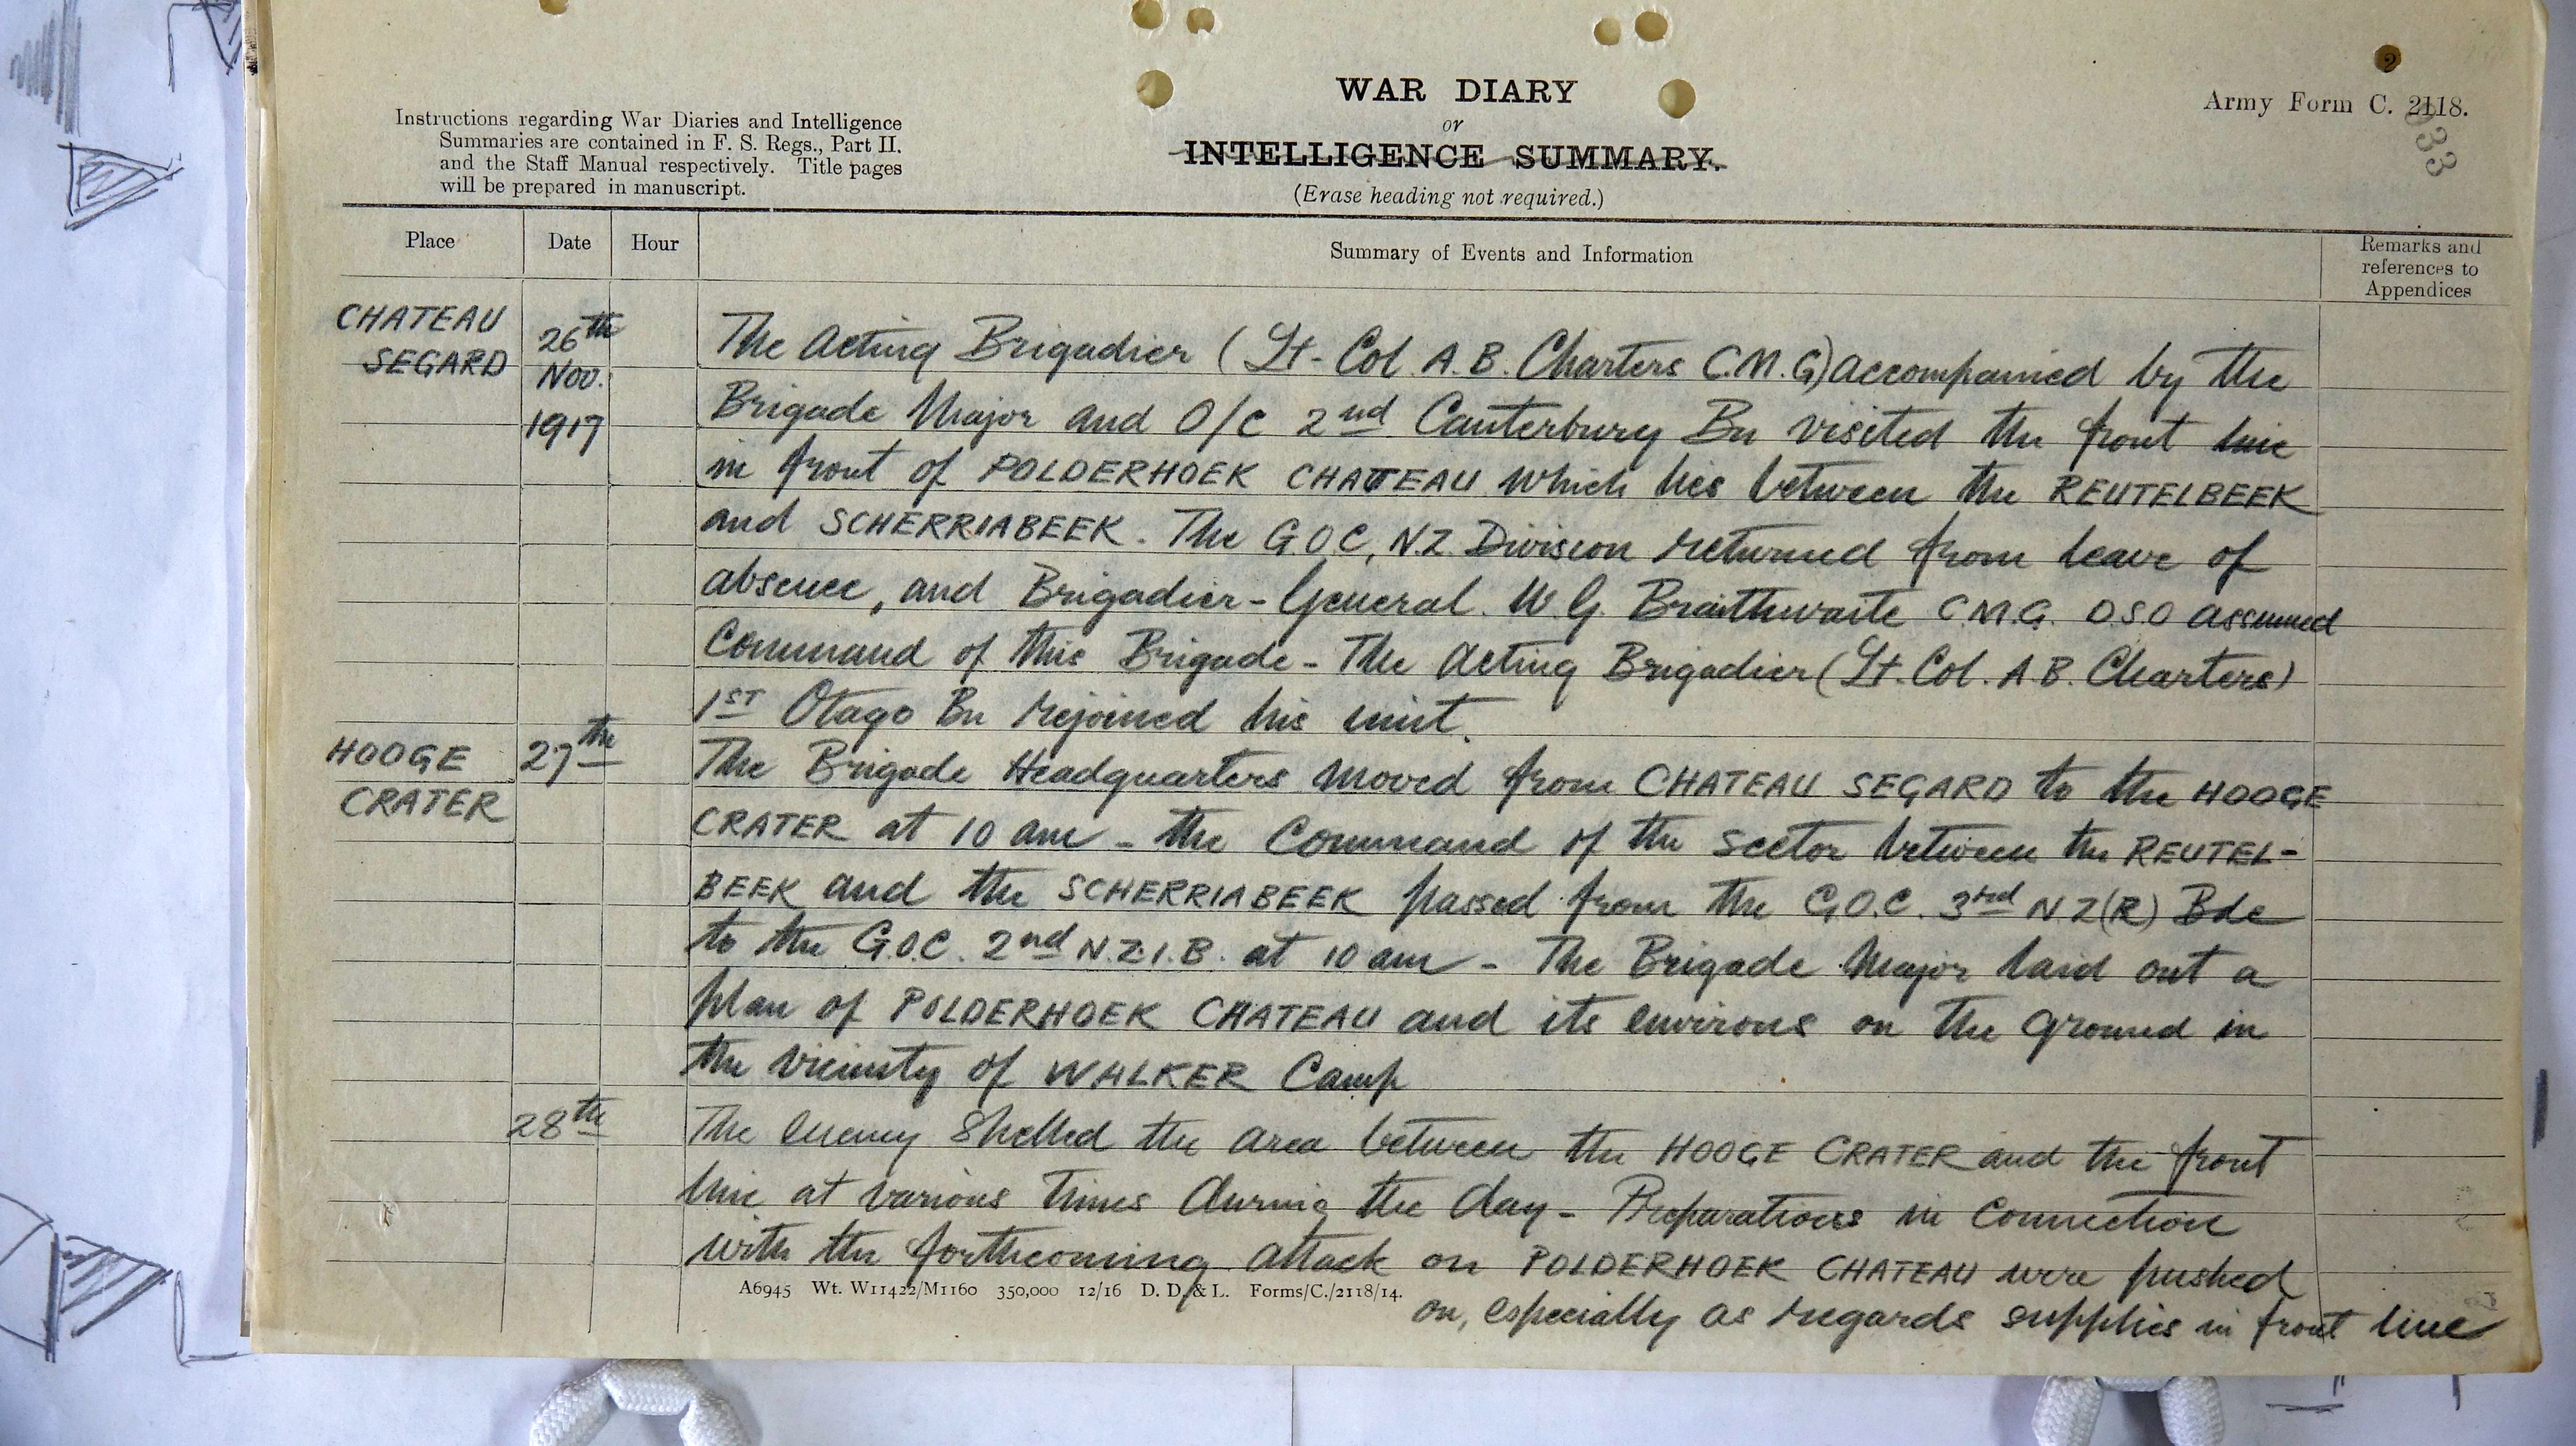 2
Army Form C. 2118.
033
WAR DIARY
or
INTELLIGENCE SUMMARY.
(Erase heading not required.)
Instructions regarding War Diaries and Intelligence
Summaries are contained in F. S. Regs., Part II.
and the Staff Manual respectively. Title pages
will be prepared in manuscript.
Place
Date
Hour
Summary of Events and Information
Remarks and
references to
Appendices
CHATEAU
SEGARD
26th
Nov.
1917
The Acting Brigadier (Lt-Col A.B. Charters C.M.G) accompanied by the
Brigade Major and O/C 2nd Canterbury Bn visited the front line
in front of POLDERHOEK CHATEAU which lies between the REUTELBEEK
and SCHERRIABEEK. The G.O.C, N.Z. Division returned from leave of
absence, and Brigadier-General W.G. Braithwaite C.M.G. D.S.O assumed
Command of this Brigade - The Acting Brigadier (Lt. Col. A.B. Charters)
1ST Otago Bn rejoined his unit.
HOOGE
CRATER
27th
The Brigade Headquarters moved from CHATEAU SEGARD to the HOOGE
CRATER at 10 am - the Command of the sector between the REUTEL-
BEEK and the SCHERRIABEEK passed from the G.O.C. 3rd NZ(R) Bde
to the G.O.C. 2nd N.Z.I.B. at 10 am - The Brigade Major laid out a
plan of POLDERHOEK CHATEAU and its environs on the ground in
the vicinity of WALKER Camp
28th
The enemy shelled the area between the HOOGE CRATER and the front
line at various times during the day - Preparations in connection
with the forthcoming attack on POLDERHOEK CHATEAU were pushed
on, especially as regards supplies in front line
A6945 Wt. W11422/M1160 350,000 12/16 D. D. & L. Forms/C./2118/14.